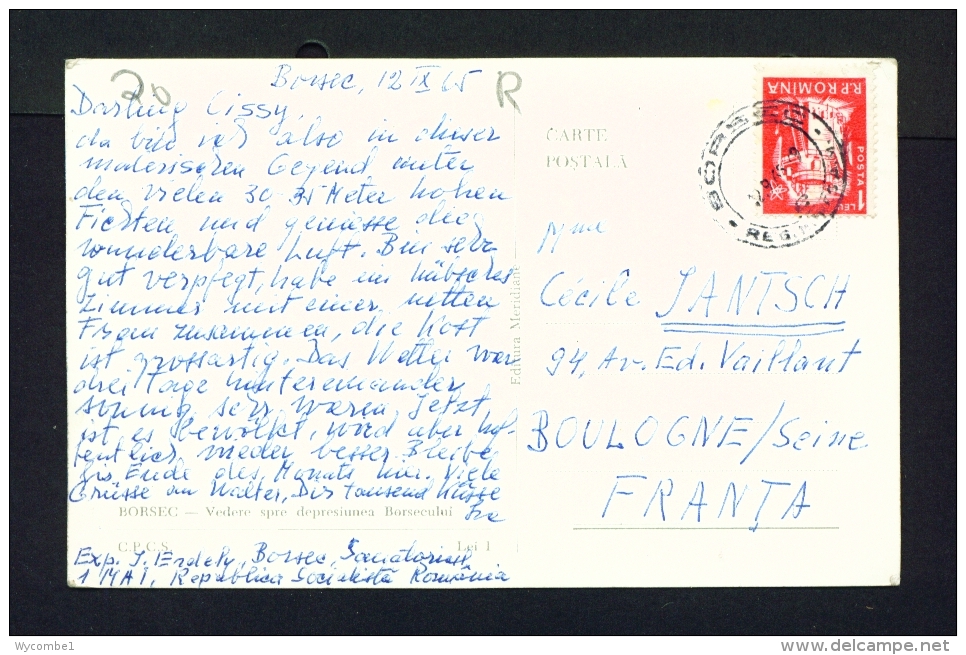 20
R
Borsec, 12 IX 65
Darling Cissy,
da bin ich also in dieser
malerischen Gegend unter
den vielen 30-35 Meter hohen
Fichten und geniesse die
wunderbare Luft. Bin sehr
gut verpflegt, habe ein hübsches
Zimmer mit einer netten
Frau zusammen, die Kost
ist grossartig. Das Wetter war
drei Tage hintereinander
sonnig, sehr warm. Jetzt
ist es bewölkt, wird aber hof-
fentlich wieder besser. Bleibe
bis Ende des Monats hier. Viele
Grüsse an Walter, Dir tausend Küsse
BORSEC — Vedere spre depresiunea Borsecului
C.P.C.S. Lei 1
Exp. I. Erdely, Borsec, Sanatoriul
1 MAI, Republica Socialistă România
Editura Meridiane
CARTE
POŞTALĂ
R.P.ROMINA
POSTA
1 LEU
BORSEC
REG.
Mme
Cécile JANTSCH
94, Av. Ed. Vaillant
BOULOGNE/Seine
FRANŢA
Wycombe1
delcampe.net